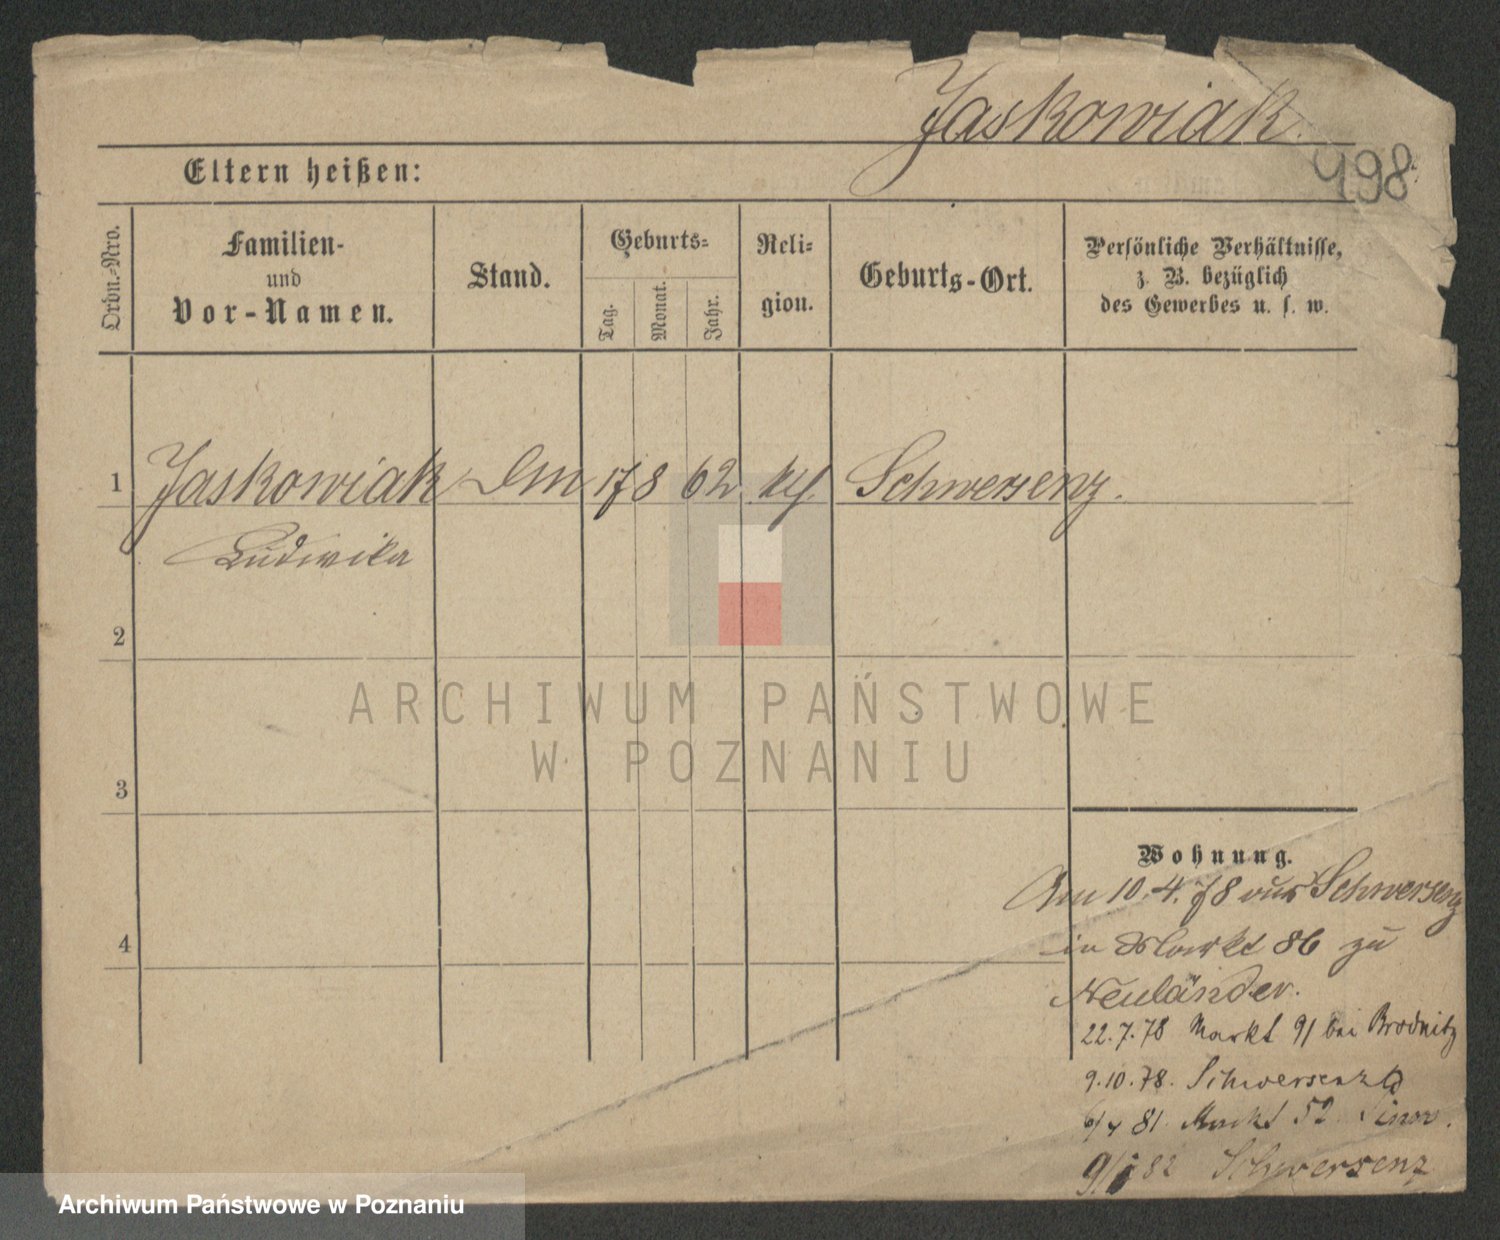 Jaskowiak.
498
Eltern heißen:
Ordn.-Nro.
Familien-
und
Vor-Namen.
Stand.
Geburts-
Tag.
Monat.
Jahr.
Reli-
gion.
Geburts-Ort.
Persönliche Verhältnisse,
z. B. bezüglich
des Gewerbes u. s. w.
1 Jaskowiak 17 8 62 Schwersenz.
Ludwika
2
ARCHIWUM PAŃSTWOWE
W POZNANIU
3
Wohnung.
Am 10. 4. 78 aus Schwersenz
4
in Markt 86 zu
Neuländer.
22. 7. 78 Markt 91 bei Brodnitz
9. 10. 78. Schwersenz
81. Markt 52
82 Schwersenz
Archiwum Państwowe w Poznaniu